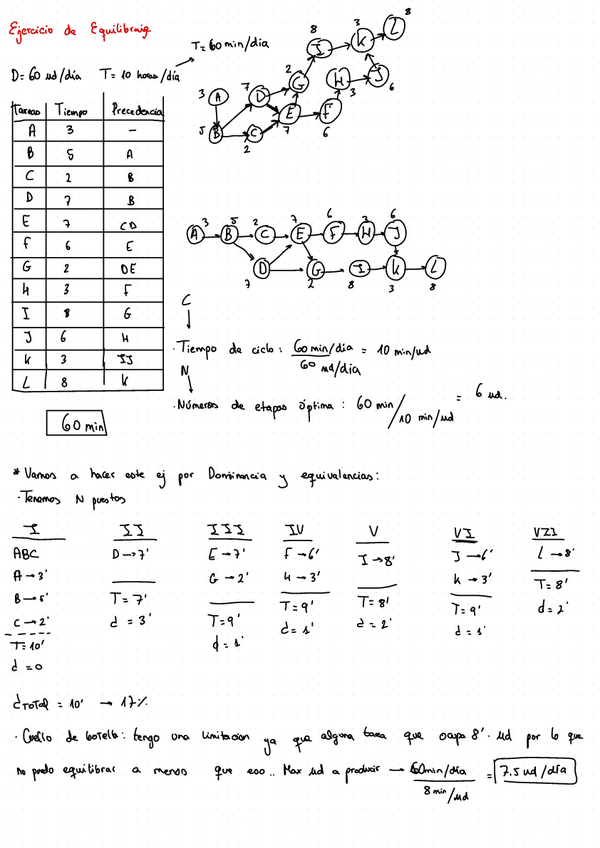 Ejercicio de Equilibraje
T = 60 min/dia
D = 60 ud/dia T = 10 horas/dia
Tareas Tiempo Precedencia
A 3 -
B 5 A
C 2 B
D 7 B
E 7 CD
F 6 E
G 2 DE
H 3 F
I 8 G
J 6 H
K 3 IJ
L 8 K
60 min
3 A
5 B
C 2
7 D
E 7
2 G
F 6
8 I
H 3
J 6
3 K
L 8
A 3 B 5 C 2 E 7 F 6 H 3 J 6
D 7 G 2 I 8 K 3 L 8
C
· Tiempo de ciclo : 60 min/dia / 60 ud/dia = 10 min/ud
N
· Números de etapas óptima : 60 min / 10 min/ud = 6 ud.
* Vamos a hacer este ej por Dominancia y equivalencias :
· Tenemos N puestos
I II III IV V VI VII
ABC D → 7' E → 7' F → 6' I → 8' J → 6' L → 8'
A → 3' G → 2' H → 3' K → 3'
B → 5'
C → 2'
T = 10' T = 7' T = 9' T = 9' T = 8' T = 9' T = 8'
d = 0 d = 3' d = 1' d = 1' d = 2' d = 1' d = 2'
d TOTAL = 10' → 17%
· Cuello de botella : tengo una limitacion ya que alguna tarea que ocupa 8' · ud por lo que
no puedo equilibrar a menos que eso .. Max ud a producir → 60min/dia / 8 min/ud = 7.5 ud/dia